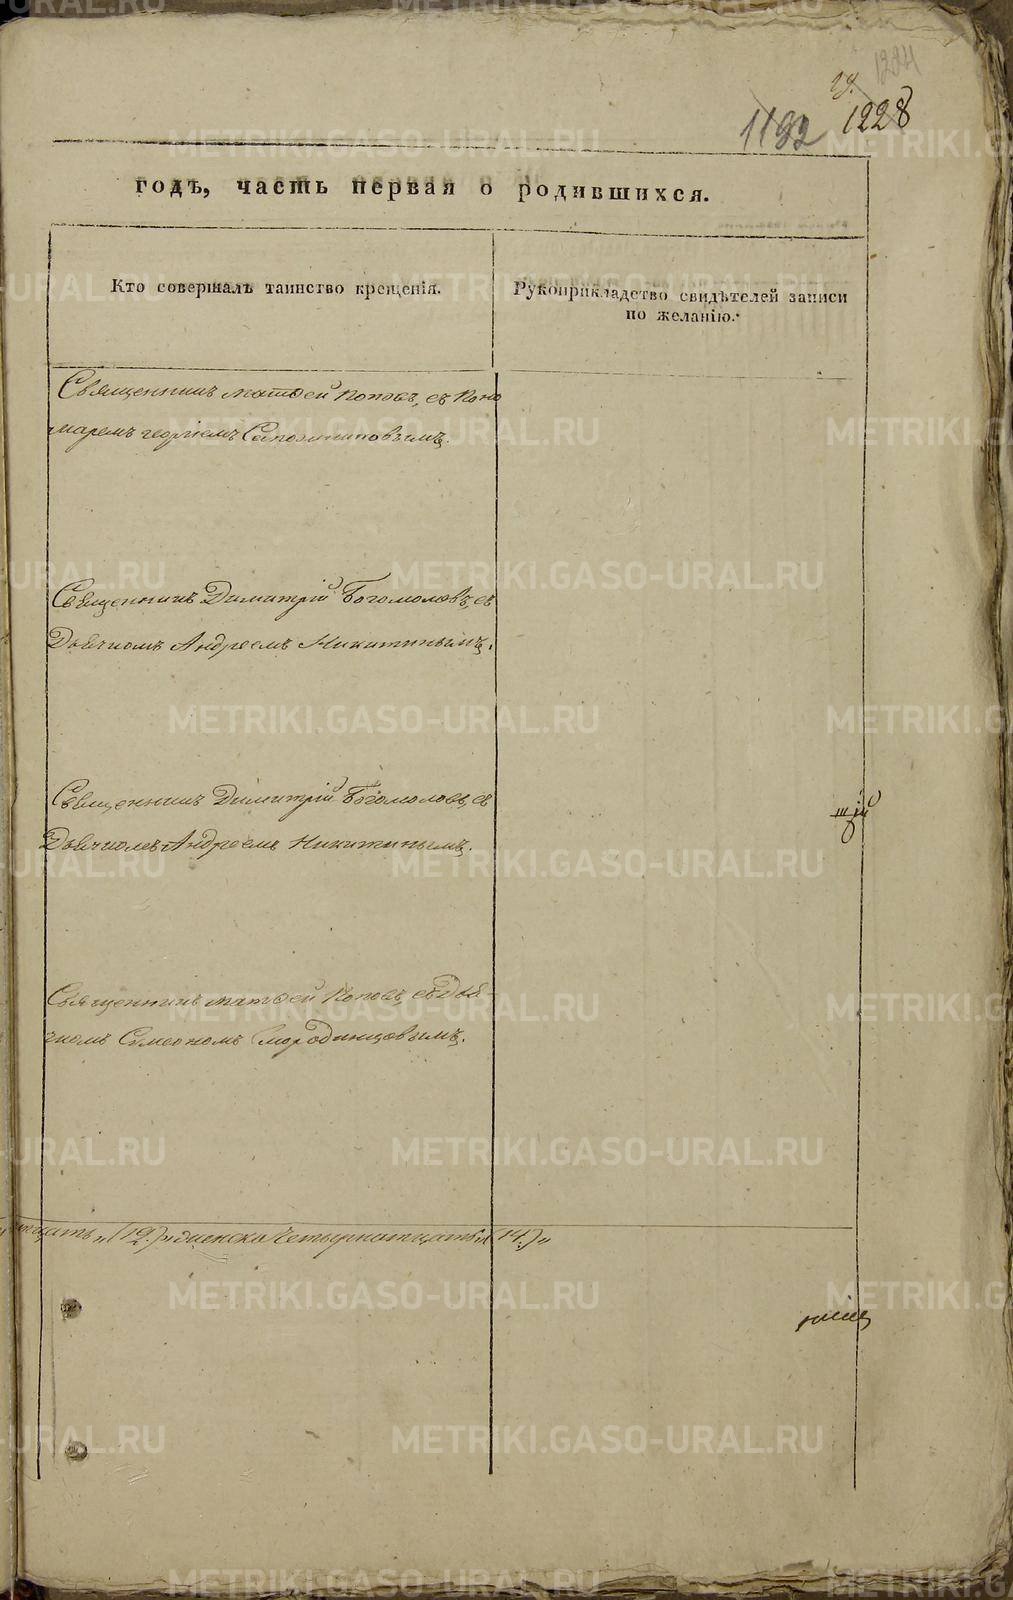 1224
29.
1192 1228
годъ, часть первая о родившихся.
Кто совершалъ таинство крещенія.
Рукоприкладство свидѣтелей записи
по желанію.
Священникъ Матѳей Поповъ, съ Поно
маремъ Георгіемъ Сапожниковымъ.
Священникъ Димитрій Богомоловъ, съ
Дьячкомъ Андреемъ Никитинымъ.
Священникъ Димитрій Богомоловъ, съ
Дьячкомъ Андреемъ Никитинымъ.
Священникъ Матѳей Поповъ, съ Дья-
чкомъ Симеономъ Смородинцовымъ.
(12.) женска Четырнатцать (14.)
METRIKI.GASO-URAL.RU